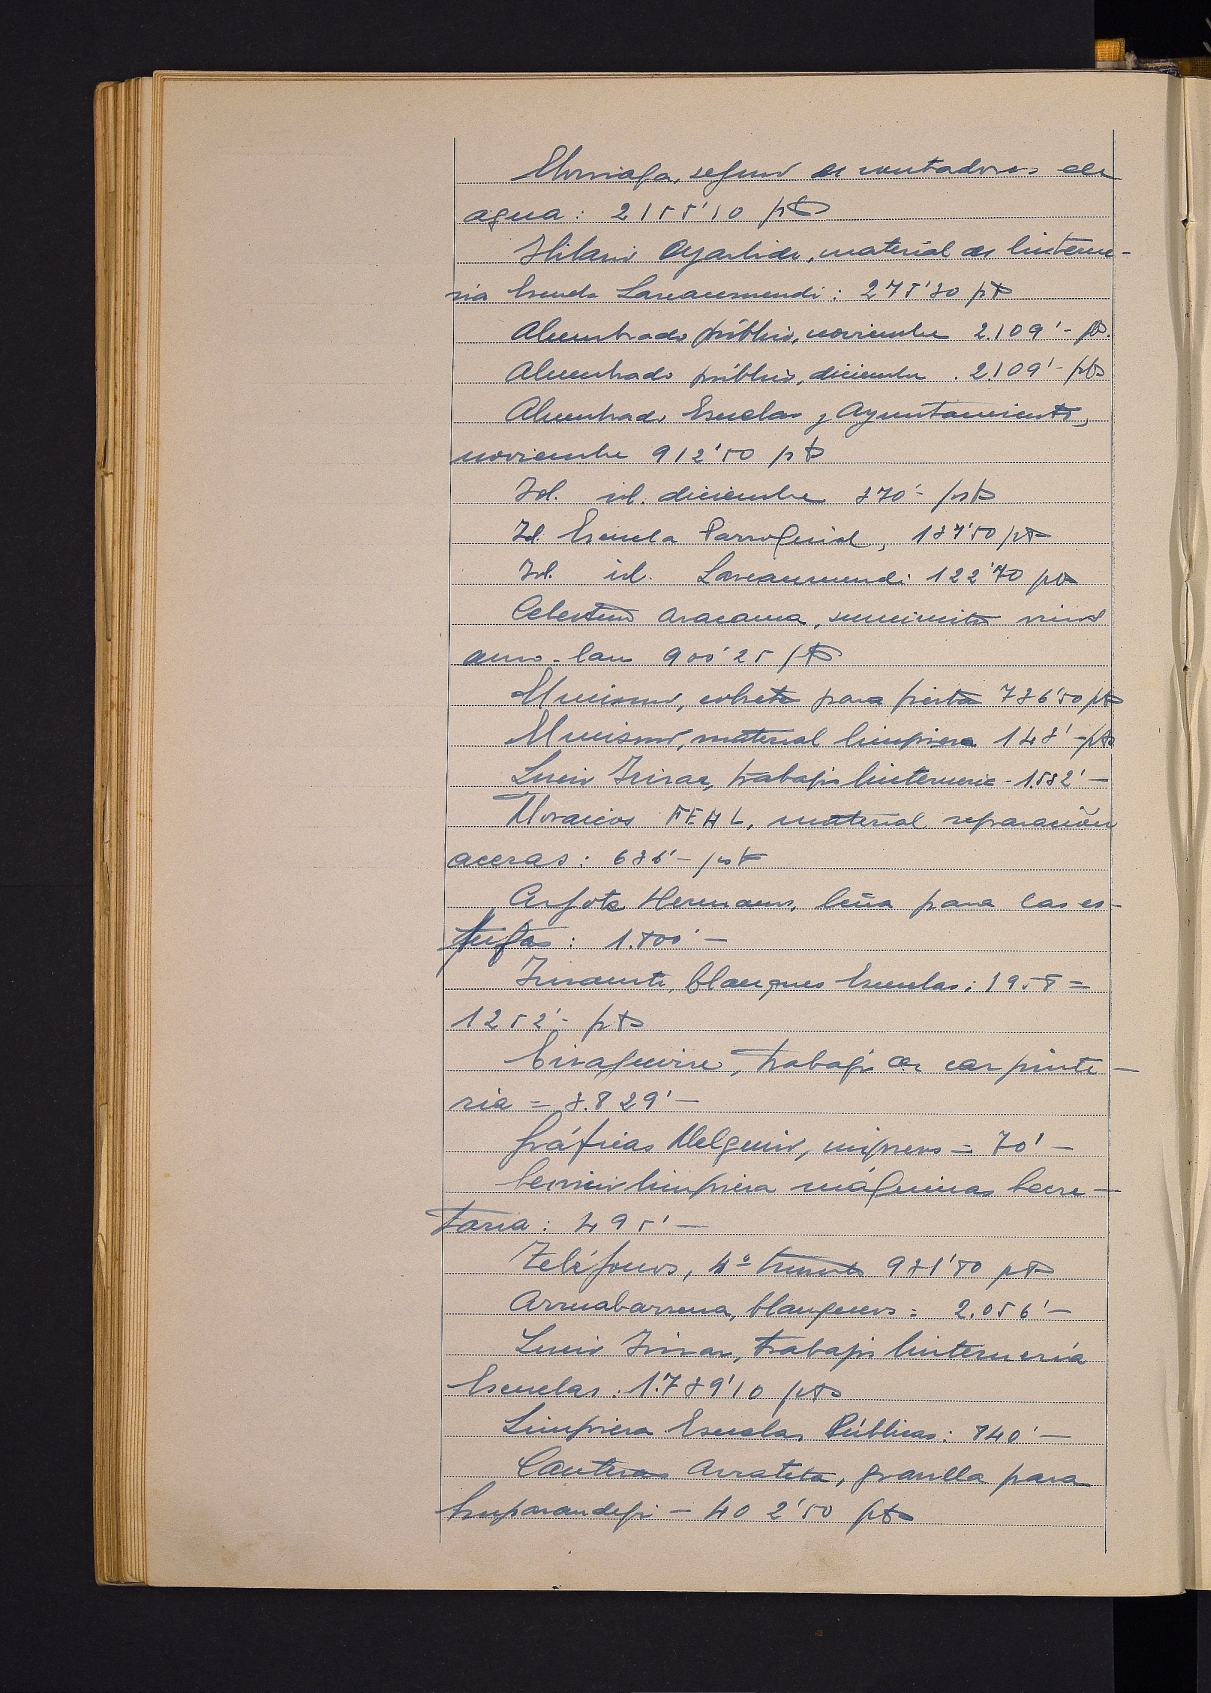 Elorriaga, seguro de contadores de
agua: 2155'10 pts
Hilario Ayastuy, material de linterne-
ria Escuela Lascaurmendi: 275'30 pts
Alumbrado público, noviembre 2.109'- pts.
Alumbrado público, diciembre . 2.109'- pts
Alumbrado Escuelas y Ayuntamiento,
noviembre 912'50 pts
Id. id. diciembre 870'- pts
Id Escuela Parroquial, 187'50 pts
Id. id. 122'70 pts
Celestino Aracama, suministro vino
900'25 pts
El mismo, cohetes para fiestas 786'50 pts
El mismo, material limpieza 148'- pts
Lucio Irizar, trabajos linterneria - 1.582'-
Mosaicos FEAL, material reparación
aceras: 686'- pts
Hermanos, leña para las es-
tufas: 1.800'-
blanqueo Escuelas: 1958 =
1252'- pts
Eizaguirre, trabajos de carpinte-
ria = 8.829'-
Gráficas impresos = 70'-
Servicio limpieza máquinas Secre-
taria: 495'-
Teléfonos, 4º trimestre 981'80 pts
Arruabarrena, blanqueos = 2.056'-
Lucio Irizar, trabajos linterneria
Escuelas . 1.789'10 pts
Limpieza Escuelas Públicas: 840'-
Canteras Arrateta, gravilla para
- 402'50 pts